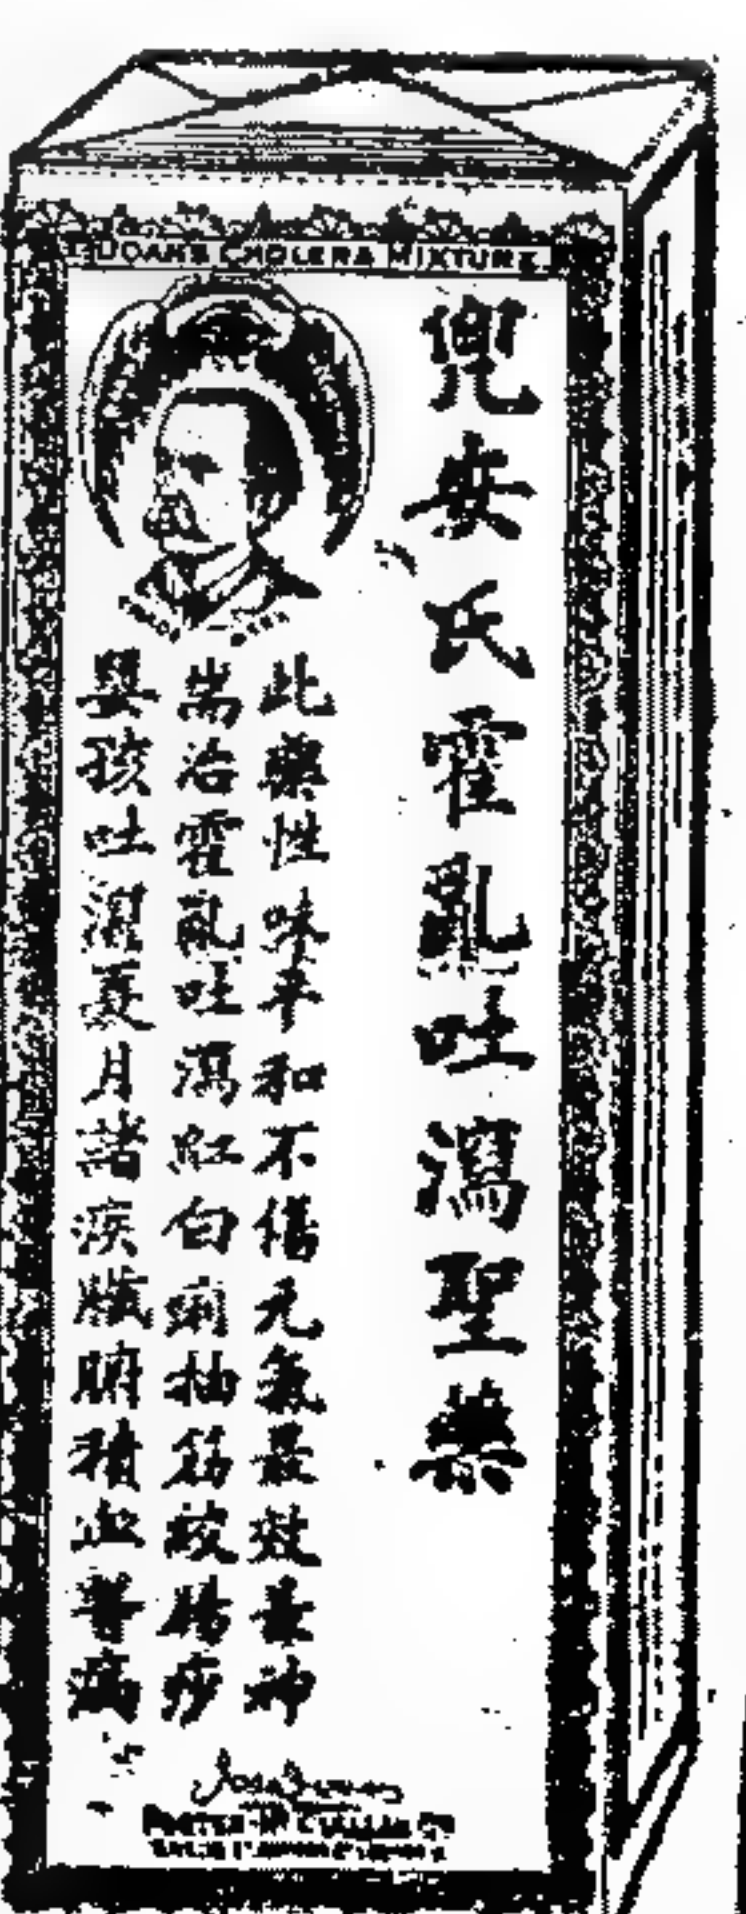 DOAN'S CHOLERA MIXTURE
兜安氏霍亂吐瀉聖藥
TRADE MARK
此藥性味平和不傷元氣最效最神
耑治霍亂吐瀉紅白痢抽筋絞腸痧
嬰孩吐瀉夏月諸痰臟腑積血等病
FOSTER-McCLELLAN Co